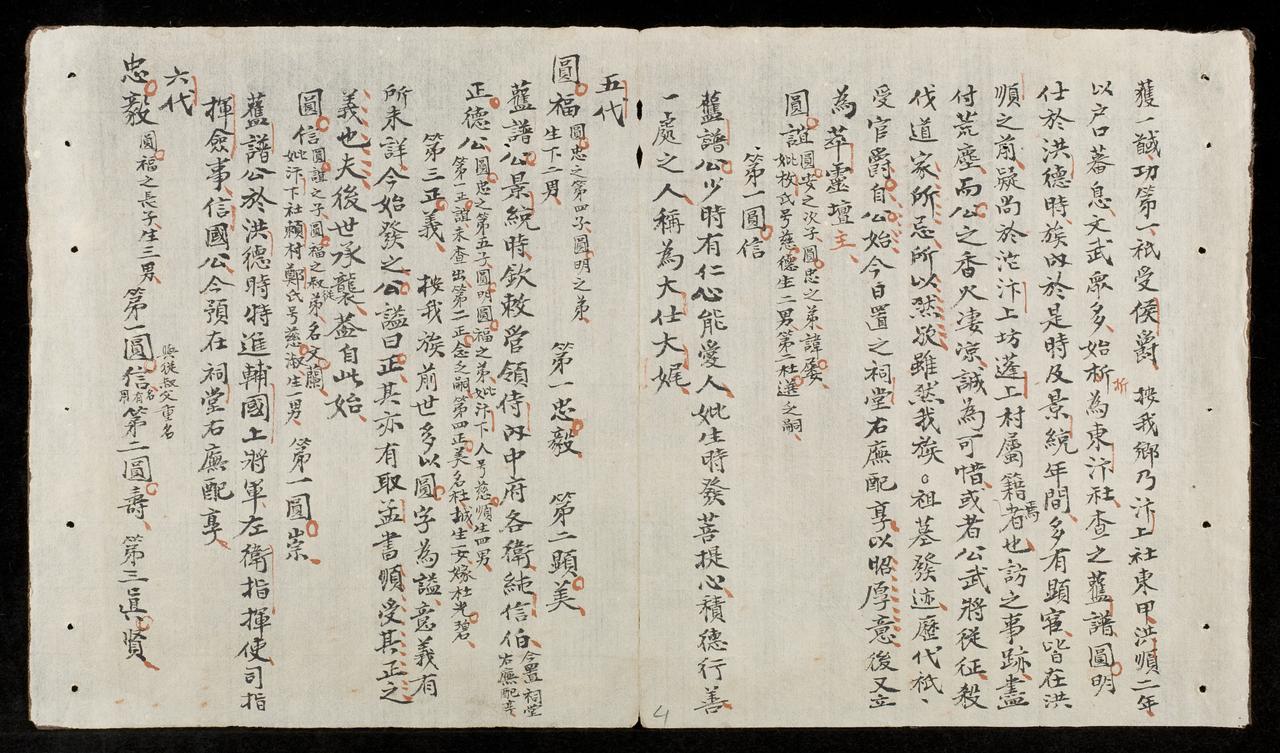 獲一馘功第一祇受侯爵 按我鄉乃汴上社東甲洪順二年
以户口蕃息文武眾多始析為東汴社查之舊譜圓明
析
仕於洪德時族内於是時及景統年間多有顕宦皆在洪
順之前疑尚於沱汴上坊蓬上村屬籍者也訪之事跡盡
焉
付荒塵而公之香火凄凉誠為可惜或者公武將從征殺
伐道家所忌所以然欤雖然我族祖墓發迹歷代祇
受官爵自公始今自置之祠堂右廡配享以昭厚意後又立
為萃靈壇主
圓誼圓安之次子圓忠之弟諱屡
妣枚氏号慈德生二男第二杜選之嗣
第一圓信
舊譜公少時有仁心能愛人妣生時發菩提心積德行善
一處之人稱為大仕大娓
五代
圓福圓忠之第四子圓明之弟
生下二男
第一忠毅 第二顕美
舊譜公景統時欽敕管領侍内中府各衛純信伯今置祠堂
右廡配享
正德公圓忠之第五子圓明圓福之弟妣汴下人号慈順生四男
第一正誼未查出第二正念之嗣第四正美名社生一女嫁杜光碧
第三正義 按我族前世多以圓字為謚意義有
所未詳今始發之公謚曰正其亦有取孟書順受其正之
義也夫後世承襲葢自此始
圓信圓誼之子圓福之從叔弟名文蘭
妣汴下社頼村鄭氏号慈淑生一男
第一圓崇
舊譜公於洪德時特進輔國上將軍左衛指揮使司指
揮僉事信國公今預在祠堂右廡配享
六代
忠毅圓福之長子生三男 第一圓信第二圓壽 第三真賢
與從叔父重名
名有用
4